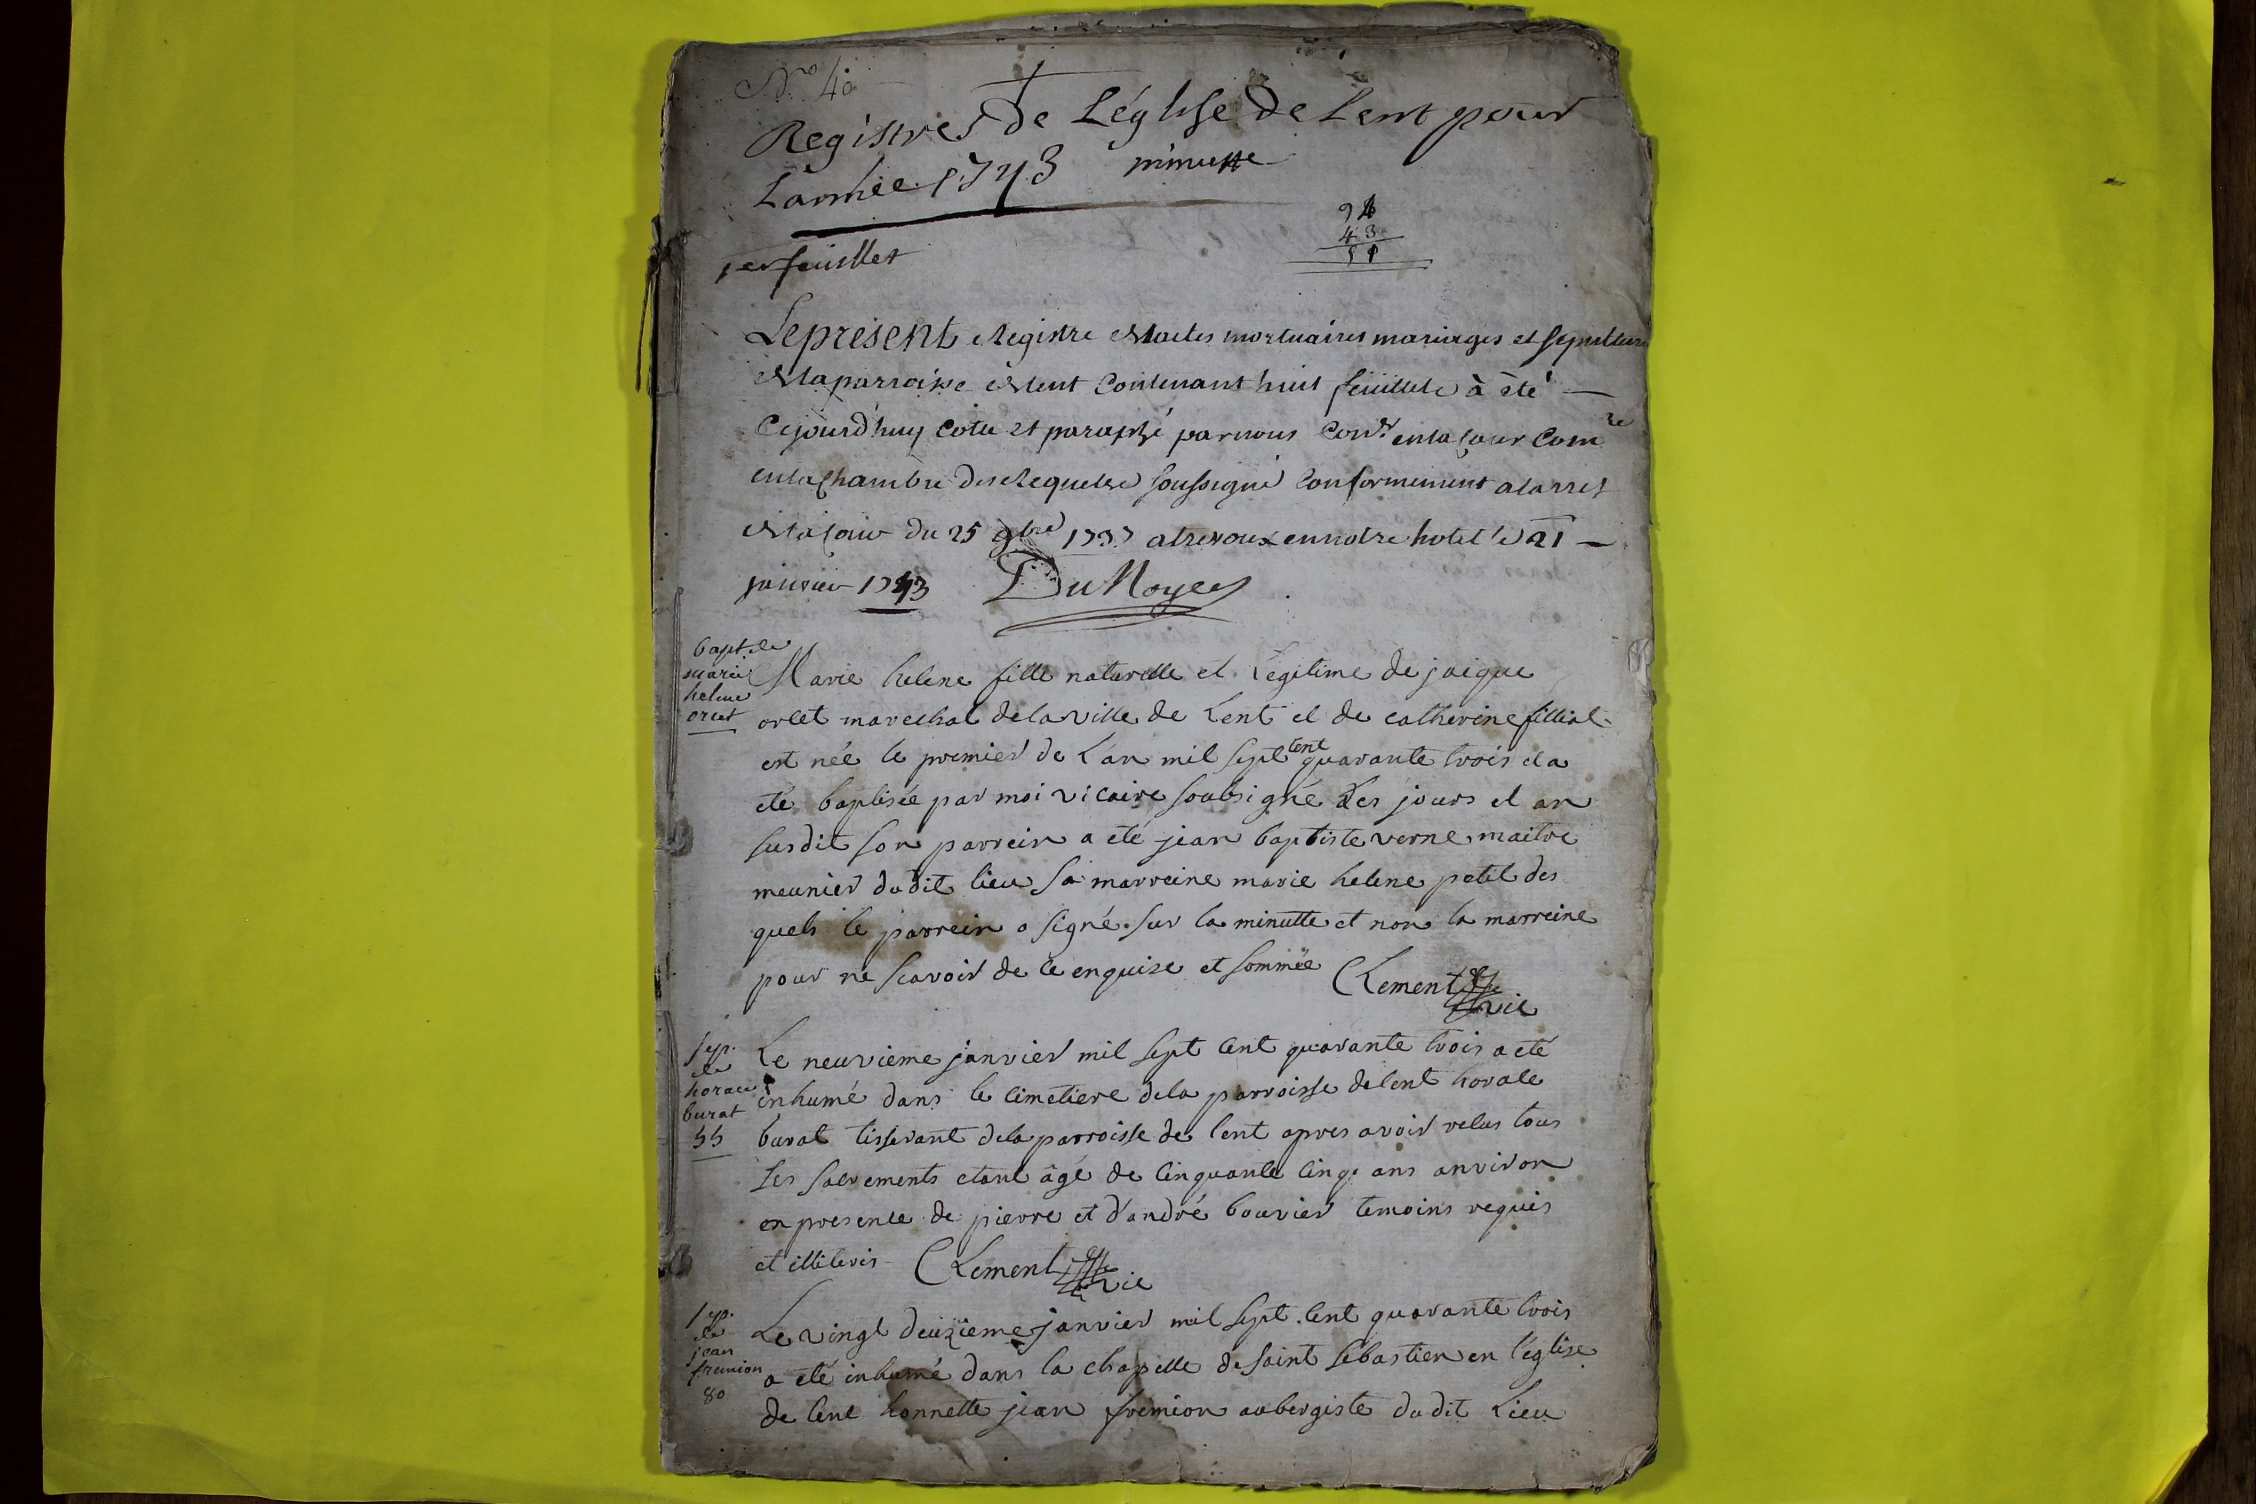 N.º 40
Registres de Léglise de Lent pour
Lannée 1743 minutte
94
43
51
1er feuillet
Le présent Registre des actes mortuaires mariages et sepulture
de la parroisse de Lent contenant huit feuillets à été
Cejourd'huy cotté et paraphé par nous Con.er en la cour Com.re
en la Chambre des Requetes soussigné conformement a larrest
de la cour du 25 9bre 1737 a trevoux en notre hotel le 21
janvier 1743 DuNoyer
bapt. de
marie
helene
orcet
Marie helene fille naturelle et Légitime de jaique
orcet marechal de la ville de Lent et de catherine filliat
est née le premier de L'an mil sept cent quarante trois et a
eté baptisée par moi vicaire soubsigné Les jours et an
susdit son parrein a eté jean baptiste verne maitre
meunier dudit lieu sa marreine marie helene petit des
quels le parrein a signé sur la minutte et non la marreine
pour ne scavoir de ce enquise et sommée Clement
vic
sep.
de
horace
burat
55
Le neuvieme janvier mil sept cent quarante trois a eté
inhumé dans le cimetiere de la parroisse de lent horace
burat tisserant de la parroisse de lent apres avoir recus tous
Les sacrements etant âgé de cinquante cinq ans anviron
en presence de pierre et d'andré bouvier temoins requis
et illiteris Clement
vic
sep.
de
jean
fremion
80
Le vingt deuzieme janvier mil sept cent quarante trois
a eté inhumé dans la chapelle de saint sébastien en l'église
de lent honnette jean fremion aubergiste dudit Lieu